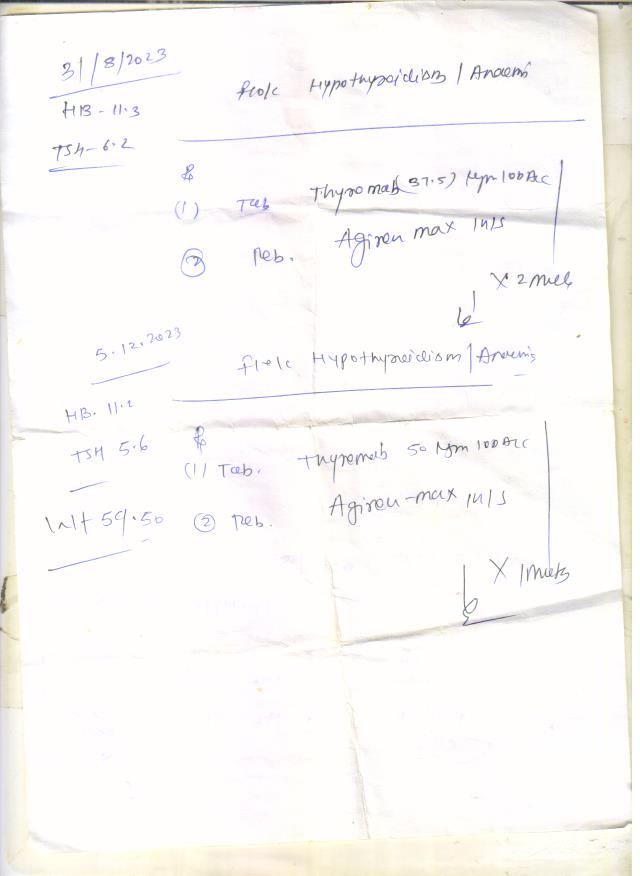 31/8/2023
HB - 11.3
TSH - 6.2
f/o/c Hypothyroidism / Anaemis
(1) Tab Thyromab (37.5) 100 Acc
(2) Reb. Agiron max 1n/s
X 2
5.12.2023
f/o/c Hypothyroidism / Anaemis
HB. 11.2
TSH 5.6
(1) Tab. Thyromab 50 100 Acc
Wt 59.50
(2) Reb. Agiron-max 1n/s
X 1